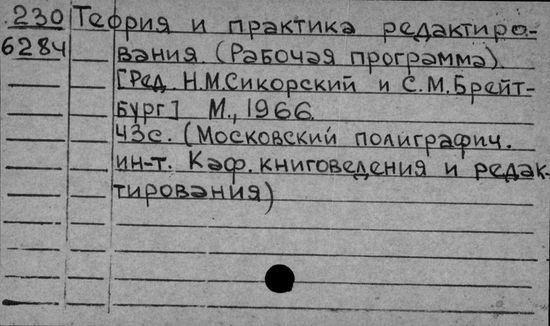 230 Теория и практика редактиро-
6284 вания. (Рабочая программа).
[Ред. Н.М.Сикорский и С.М.Брейт-
бург] М., 1966.
43с. (Московский полиграфич.
ин-т. Каф. книговедения и редак-
тирования)